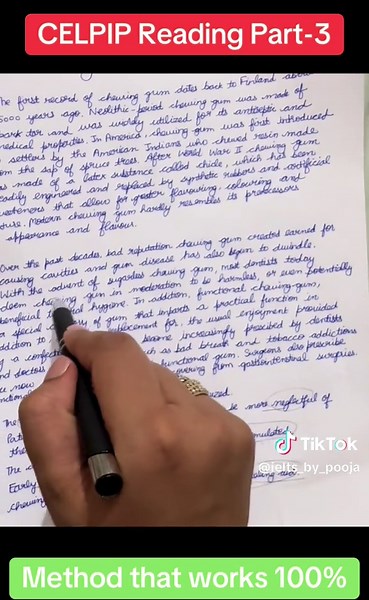 CELPIP Reading Part-3
The first record of chewing gum dates back to Finland about
5000 years ago. Neolithic-period chewing gum was made of
bark tar and was widely utilized for its antiseptic and
medical properties. In America, chewing gum was first introduced
settlers by the American Indians who chewed resin made
from the sap of spruce trees. After World War II chewing gum
as made of a latex substance called chicle, which has been
readily engineered and replaced by synthetic rubbers and artificial
sweeteners that allow for greater flavouring, colouring and
Modern chewing gum hardly resembles its predecessors
appearance and flavour.
Over the past decades, bad reputation chewing gum created earned for
causing cavities and gum disease has also begun to dwindle.
With the advent of sugarless chewing gum, most dentists today
deem chewing gum in moderation to be harmless, or even potentially
beneficial hygiene. In addition, functional chewing-gum,
a special of gum that imparts a practical function in
addition to the usual enjoyment provided
by a confect become increasingly prescribed by dentists
and doctors such as bad breath and tobacco addictions
now functional gum. Surgeons also prescribe
covering from gastrointestinal surgeries.
The
be more neglectful of
Part
the
The
Early
chewing
TikTok
@ielts_by_pooja
Method that works 100%